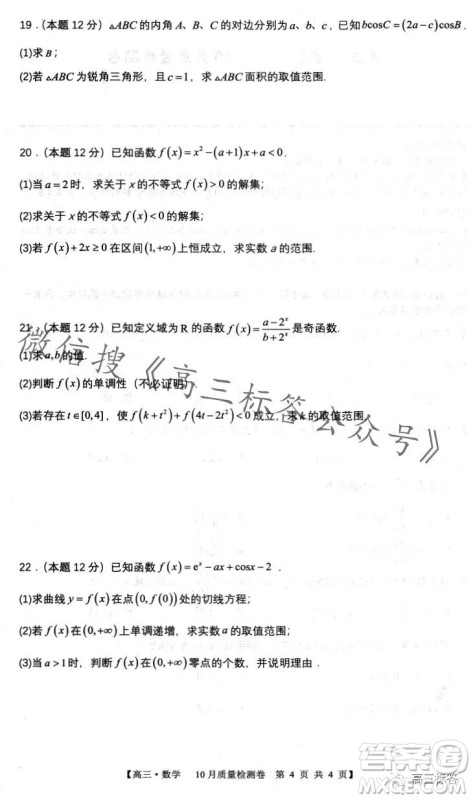 19．(本题12分) △ABC的内角A、B、C的对边分别为a、b、c，已知bcosC=(2a−c)cosB．
(1)求B；
(2)若△ABC为锐角三角形，且c=1，求△ABC面积的取值范围．
20．(本题12分) 已知函数f(x)=x²−(a+1)x+a<0．
(1)当a=2时，求关于x的不等式f(x)>0的解集；
(2)求关于x的不等式f(x)<0的解集；
(3)若f(x)+2x≥0在区间(1,+∞)上恒成立，求实数a的范围．
21．(本题12分) 已知定义域为R的函数f(x)=(a−2ˣ)/(b+2ˣ)是奇函数．
(1)求a,b的值．
(2)判断f(x)的单调性（不必证明）．
(3)若存在t∈[0,4]，使f(k+t²)+f(4t−2t²)<0成立，求k的取值范围．
微信搜《高三标答公众号》
22．(本题12分) 已知函数f(x)=eˣ−ax+cosx−2．
(1)求曲线y=f(x)在点(0,f(0))处的切线方程；
(2)若f(x)在(0,+∞)上单调递增，求实数a的取值范围；
(3)当a>1时，判断f(x)在(0,+∞)零点的个数，并说明理由．
【高三·数学 10月质量检测卷 第4页 共4页】
答案圈